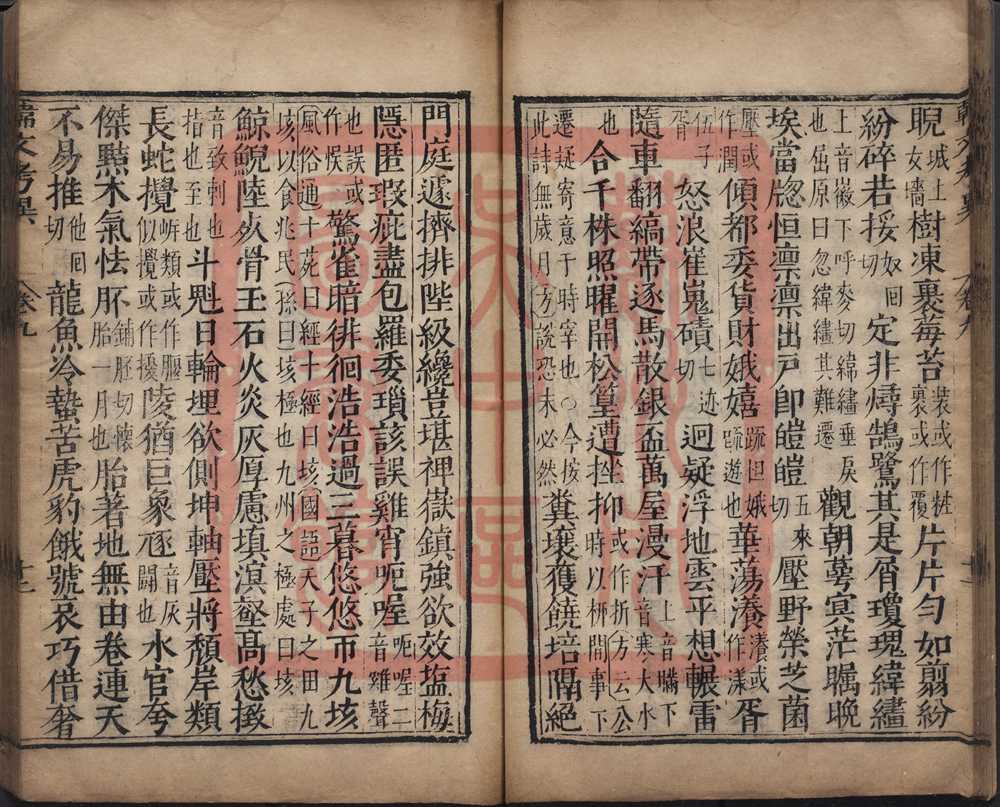 睨城上女墻樹凍裹莓苔裝或作粧裹或作覆片片勻如剪紛
紛碎若挼奴回切定非燖鵠鷺其是屑瓊瑰緯繣
上音徽下呼麥切緯繣垂戾也屈原曰忽緯繣其難遷觀朝萼冥茫矚晚
埃當牕恒凛凛出戸即皚皚五來切壓野榮芝菌
壓或作潤傾都委貨財娥嬉䟽但娥䟽遊也華蕩瀁瀁或作漾胥
伍子胥怒浪崔嵬磧七迹切迥疑浮地雲平想輾雷
隨車翻縞帶逐馬散銀盃萬屋漫汗上音瞞下音寒大水
也合千株照曜開松篁遭挫抑挫或作折方云公時以柳間事下
遷疑寄意于時宰也○今按此詩無歲月方說恐未必然糞壤獲饒培隔絕
門庭遽擠排陛級纔豈堪裨嶽鎮強欲效塩梅
隱匿瑕疵盡包羅委瑣該誤雞宵呃喔呃喔二音雞聲
也誤或作悞驚雀暗徘徊浩浩過三暮悠悠帀九垓
風俗通十兆曰經十經曰垓國語天子之田九垓以食兆民孫曰垓極也九州之極處曰垓
鯨鯢陸死骨玉石火炎灰厚慮填溟壑髙愁㨖
音致刺也也至也斗魁日輪埋欲側坤軸壓將頽岸類
長蛇攪岍類或作壓似攪或作擾陵猶巨象豗音灰闘也水官夸
傑黠木氣怯胚鋪胚切懷胎一月也胎著地無由卷連天
不易推他回切龍魚冷蟄苦虎豹餓號哀巧借奢
韓文考異
卷九